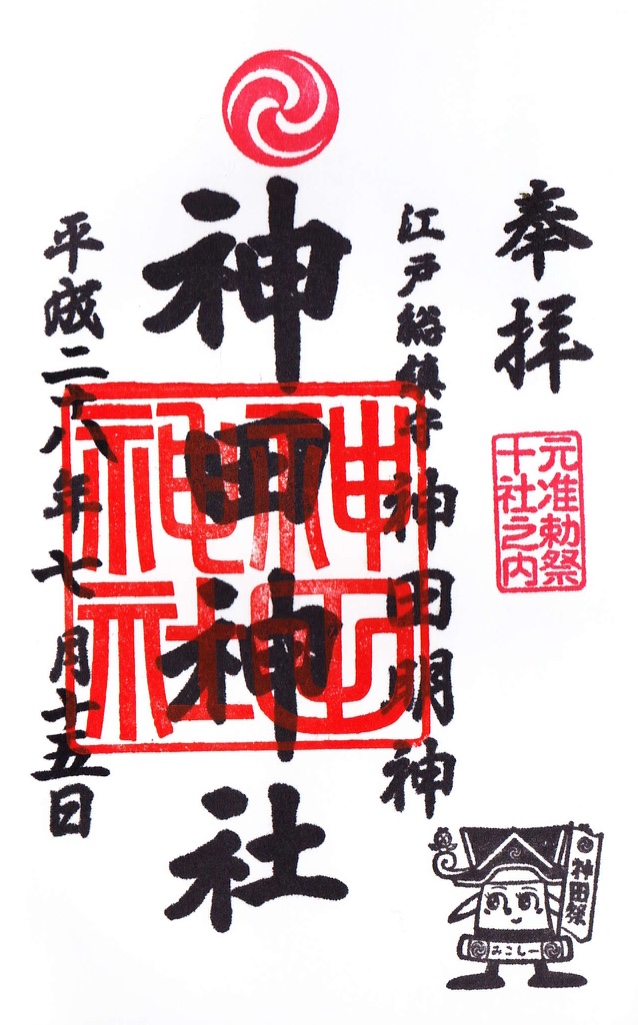 奉拝
元准勅祭
十社之内
江戸総鎮守
神田明神
神田神社
神田神社
平成二十八年七月十五日
神田祭
みこしー